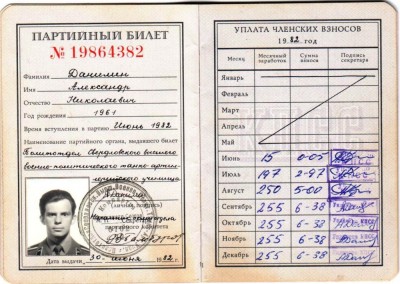 ПАРТИЙНЫЙ БИЛЕТ
№ 19864382
Фамилия Данилин
Имя Александр
Отчество Николаевич
Год рождения 1961
Время вступления в партию Июнь 1982
Наименование партийного органа, выдавшего билет
Политотдел Свердловского высшего
военно-политического танко-артил-
лерийского училища
(личная подпись)
Дата выдачи 30 июня 1982 г.
УПЛАТА ЧЛЕНСКИХ ВЗНОСОВ
1982 год
Месяц Месячный заработок Сумма взноса Подпись секретаря
Январь
Февраль
Март
Апрель
Май
Июнь 15 0-05
Июль 197 2-97
Август 250 5-00
Сентябрь 255 6-38
Октябрь 255 6-38
Ноябрь 255 6-38
Декабрь 255 6-38